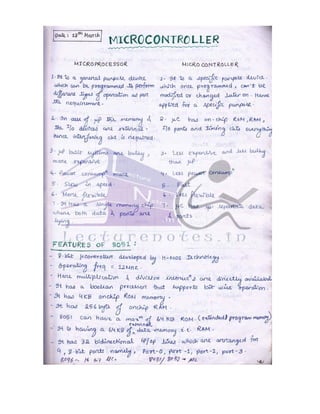 Date: 12th March
MICROCONTROLLER
MICROPROCESSOR
MICROCONTROLLER
1. It is a general purpose device
which can be programmed to perform
different types of operation as per
the requirement.
1. It is a specific purpose device
which once programmed, can't be
modified or changed later on. Hence
applied for a specific purpose
2. In case of μp the memory &
the I/o devices are external.
hence interfacing ckt is required.
2. μc has on-chip ROM, RAM,
I/o ports and timing ckts everything
3. μp built systems are bulky,
more expensive
3. Less expensive and less bulky
than μp
4. Power consumpn more
4. Less power consumpn
5. Slow in speed
5. Fast
6. More flexible
6. Less flexible
7. It has a single memory chip
where both data & are
lying
7. μc has separate data
&
Lecturenotes.in
FEATURES OF 8051:
- 8-bit μcontroller developed by H-MOS technology
- Operating freq = 12MHz.
- Here multiplication & division are directly available
- It has a boolean processor that supports bit wise operation.
- It has 4KB onchip ROM memory.
- It has 256 byte of onchip RAM.
- 8051 can have a maxm of 64KB ROM. (extended program memory)
- It is having a 64KB of external data memory i.e. RAM.
- It has 32 bidirectional i/p/op lines which are arranged in
4, 8-bit ports namely, Port-0, Port-1, Port-2, Port-3.
8096 - 16 bit μc.
8031/8032 →